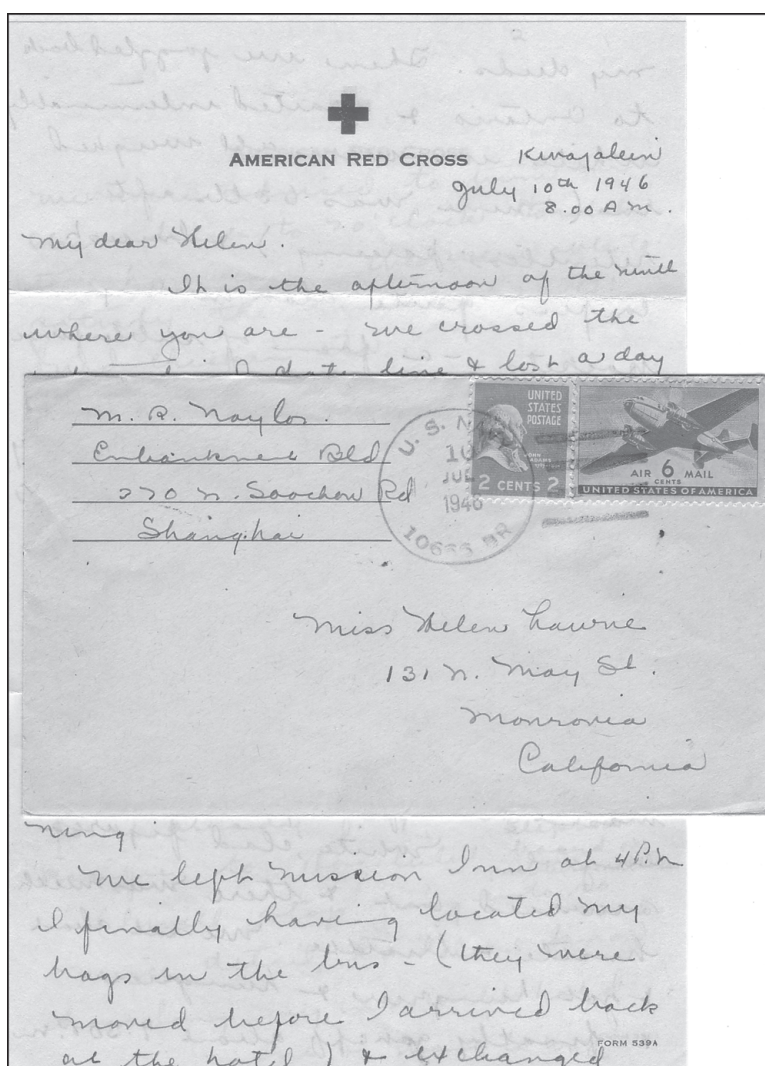 AMERICAN RED CROSS
Kwajalein
July 10th 1946
8.00 A M.
My dear Helen.
It is the afternoon of the ninth
where you are - We crossed the
date line & lost a day
M. R. Naylor.
Embankment Bld
370 N. Soochow Rd
Shanghai
U. S. NAVY
10
JUL
1946
10666 BR
UNITED
STATES
POSTAGE
JOHN
ADAMS
2 CENTS 2
AIR 6 MAIL
CENTS
UNITED STATES OF AMERICA
Miss Helen Lawrie
131 N. May St.
Monrovia
California
ning
We left Mission Inn at 4 P.M
I finally having located my
bags in the bus - (they were
moved before I arrived back
at the hotel) & exchanged
FORM 539A